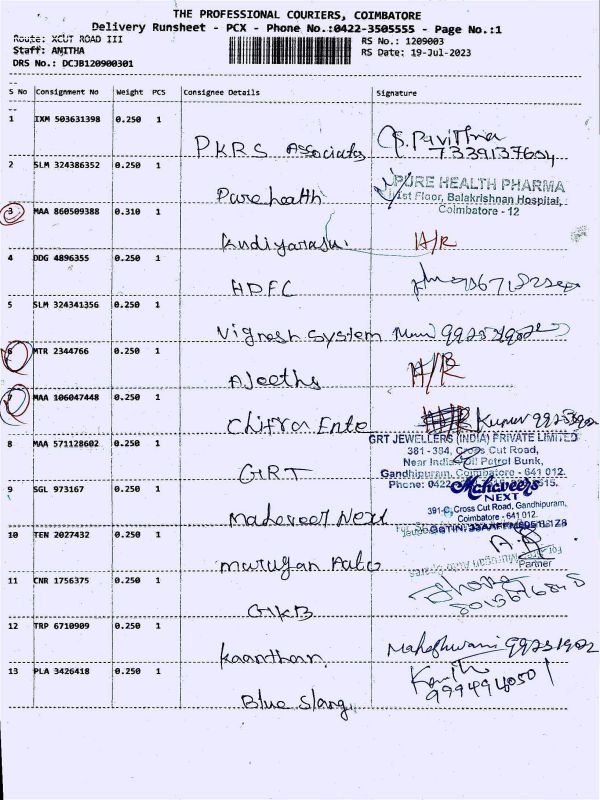 THE PROFESSIONAL COURIERS, COIMBATORE
Delivery Runsheet - PCX - Phone No.:0422-3505555 - Page No.:1
Route: XCUT ROAD III
RS No.: 1209003
Staff: AMITHA
RS Date: 19-Jul-2023
DRS No.: DCJB120900301
S No Consignment No Weight PCS Consignee Details Signature
1 IXM 503631398 0.250 1
PKRS Associates S. Pavithra
7339137604
2 SLM 324386352 0.250 1
Pure health PURE HEALTH PHARMA
1st Floor, Balakrishnan Hospital,
Coimbatore - 12
3 MAA 860509388 0.310 1
Kudiyarasu. A/R
4 DDG 4896355 0.250 1
HDFC
5 SLM 324341356 0.250 1
Vignesh System
6 MTR 2344766 0.250 1
Ajeeths A/R
7 MAA 106047448 0.250 1
Chitra Ente Kumar
8 MAA 571128602 0.250 1
GRT
GRT JEWELLERS (INDIA) PRIVATE LIMITED
381 - 384, Cross Cut Road,
Near Indian Oil Petrol Bunk,
Gandhipuram, Coimbatore - 641 012.
Phone: 0422
9 SGL 973167 0.250 1
Mahaveer Next
Mahaveers
NEXT
391-C, Cross Cut Road, Gandhipuram,
Coimbatore - 641 012.
10 TEN 2027432 0.250 1
Murugan Auto
Partner
11 CNR 1756375 0.250 1
GKB
12 TRP 6710909 0.250 1
Kaanthan Maheshwari
13 PLA 3426418 0.250 1
Blue Slang
9994948050